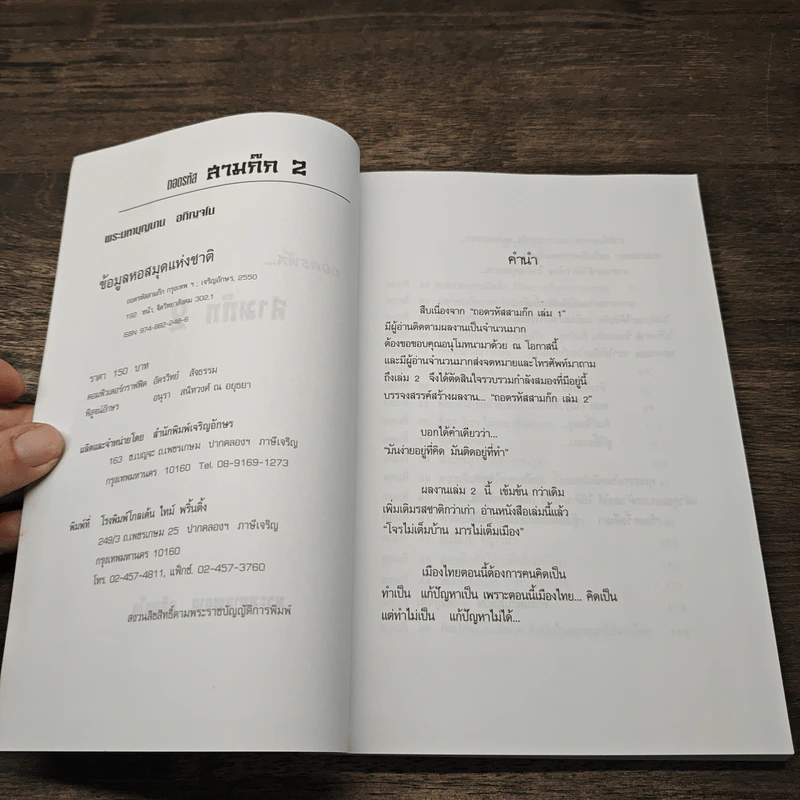 ถอดรหัส สามก๊ก 2
พระมหาบุญนาน อภิญฺจโน
ข้อมูลหอสมุดแห่งชาติ
ถอดรหัสสามก๊ก กรุงเทพ ฯ : เจริญอักษร, 2550
192 หน้า, จิตวิทยาสังคม 302.1
ISBN 974-882-248-6
ราคา 150 บาท
คอมพิวเตอร์กราฟฟิค อัครวิทย์ สัจธรรม
พิสูจน์อักษร อนุรา สนิทวงศ์ ณ อยุธยา
ผลิตและจำหน่ายโดย สำนักพิมพ์เจริญอักษร
163 ซ.เบญจะ ถ.เพชรเกษม ปากคลองฯ ภาษีเจริญ
กรุงเทพมหานคร 10160 Tel. 08-9169-1273
พิมพ์ที่ โรงพิมพ์โกลเด้น ไทม์ พริ้นติ้ง
249/3 ถ.เพชรเกษม 25 ปากคลองฯ ภาษีเจริญ
กรุงเทพมหานคร 10160
โทร. 02-457-4811, แฟ็กซ์. 02-457-3760
สงวนลิขสิทธิ์ตามพระราชบัญญัติการพิมพ์
คำนำ
สืบเนื่องจาก "ถอดรหัสสามก๊ก เล่ม 1"
มีผู้อ่านติดตามผลงานเป็นจำนวนมาก
ต้องขอขอบคุณอนุโมทนามาด้วย ณ โอกาสนี้
และมีผู้อ่านจำนวนมากส่งจดหมายและโทรศัพท์มาถาม
ถึงเล่ม 2 จึงได้ตัดสินใจรวบรวมกำลังสมองที่มีอยู่นี้
บรรจงสรรค์สร้างผลงาน... "ถอดรหัสสามก๊ก เล่ม 2"
บอกได้คำเดียวว่า...
"มันง่ายอยู่ที่คิด มันติดอยู่ที่ทำ"
ผลงานเล่ม 2 นี้ เข้มข้น กว่าเดิม
เพิ่มเติมรสชาติกว่าเก่า อ่านหนังสือเล่มนี้แล้ว
"โจรไม่เต็มบ้าน มารไม่เต็มเมือง"
เมืองไทยตอนนี้ต้องการคนคิดเป็น
ทำเป็น แก้ปัญหาเป็น เพราะตอนนี้เมืองไทย... คิดเป็น
แต่ทำไม่เป็น แก้ปัญหาไม่ได้...